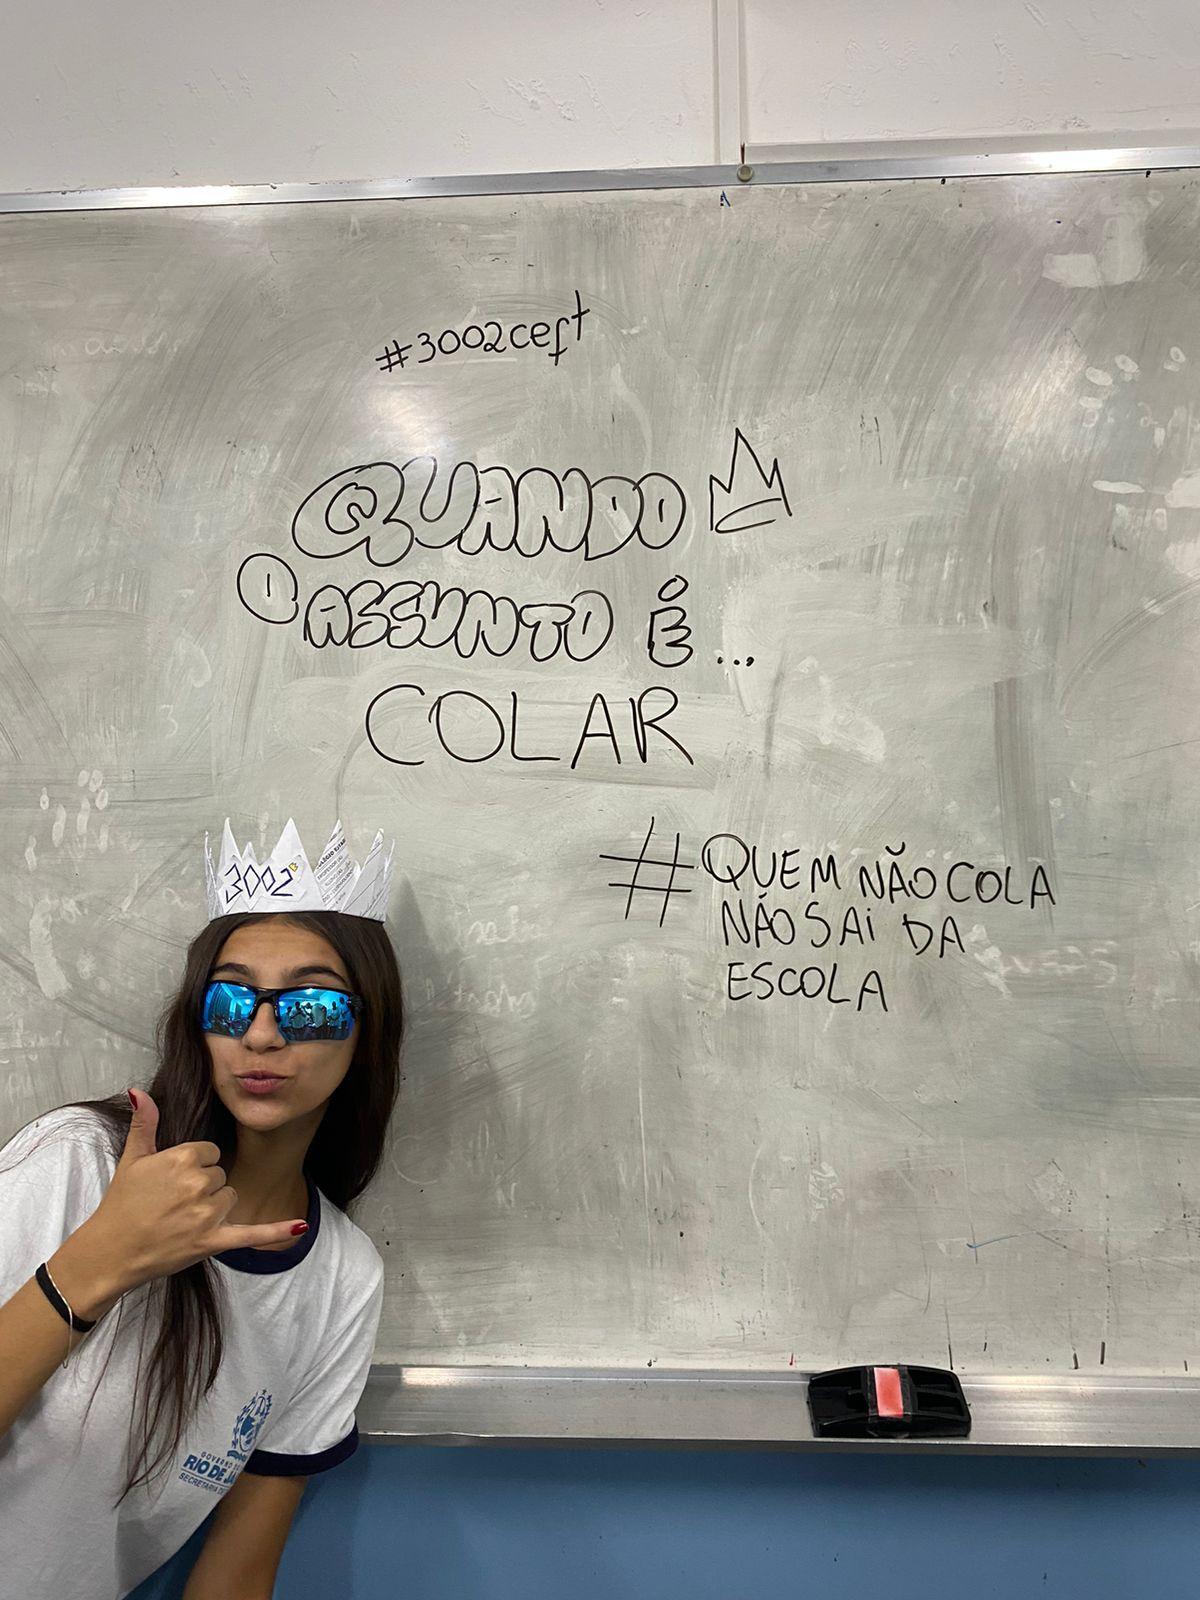 #3002ceft
QUANDO
O ASSUNTO É...
COLAR
#QUEM NÃO COLA
NÃO SAI DA
ESCOLA
3002
GOVERNO DO
RIO DE JA
SECRETARIA DE